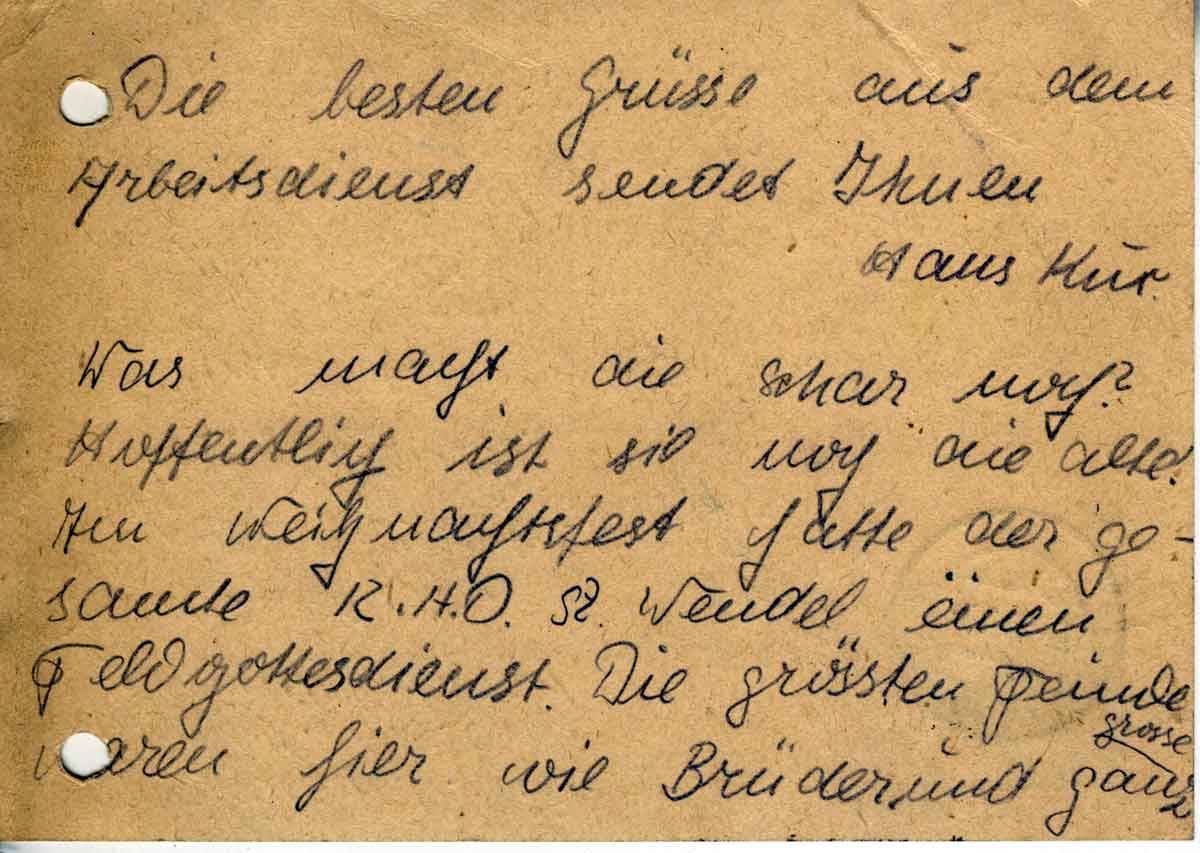 Die besten Grüsse aus dem
Arbeitsdienst sendet Ihnen
Hans Kür.
Was macht die Schar noch?
Hoffentlich ist sie noch die alte.
Am Weihnachtsfest hatte der ge-
samte K.H.D. St. Wendel einen
Feldgottesdienst. Die grössten Feinde
waren hier wie Brüder und ganz
grosse